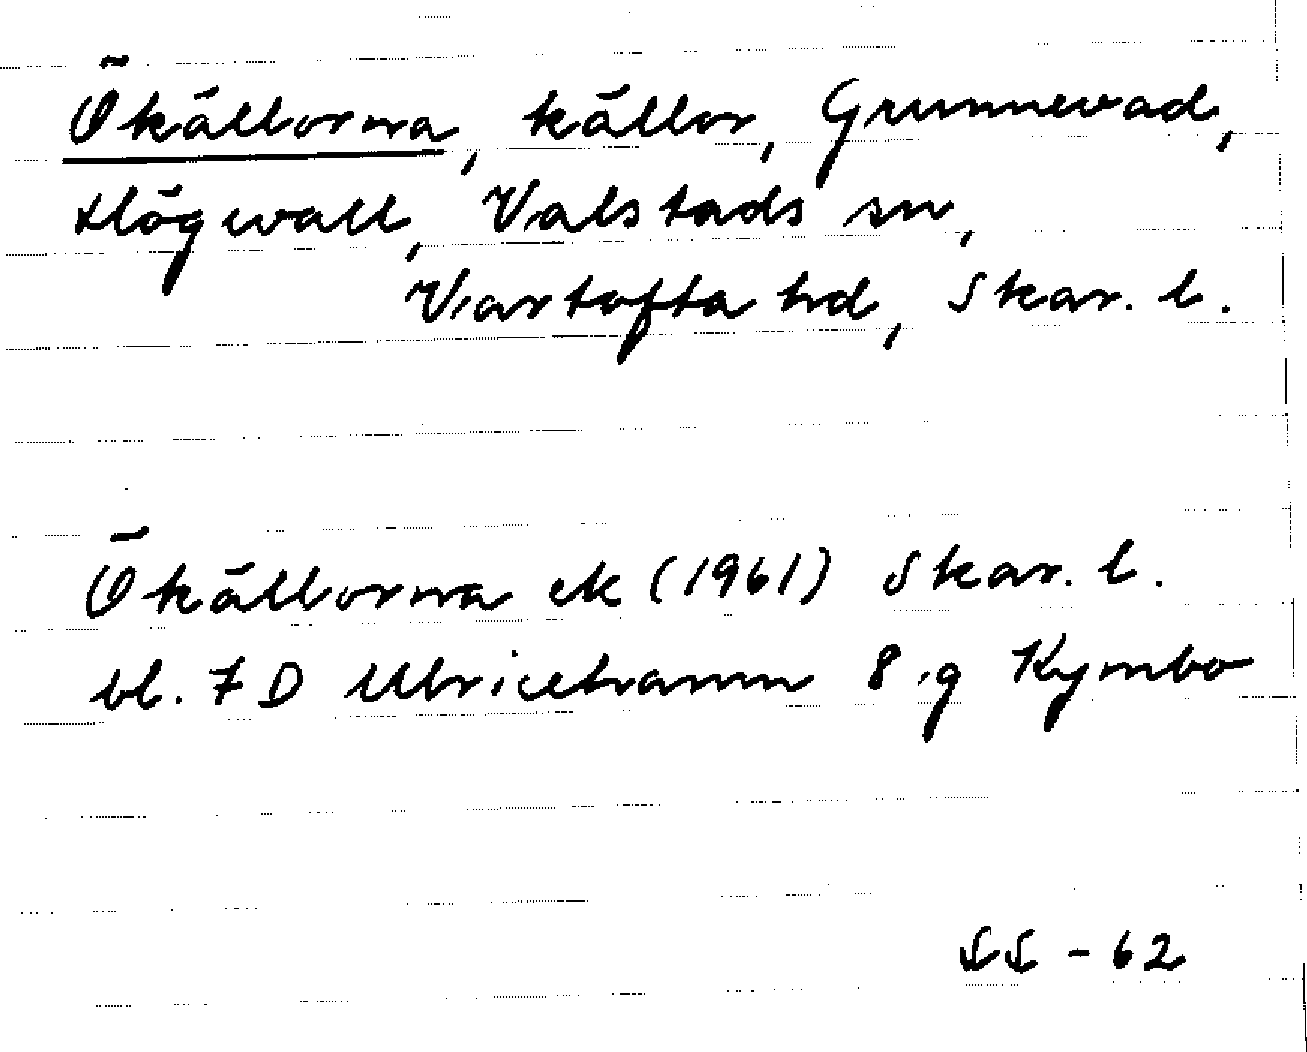 Ökällorna, källor, Grunnevad,
Högvall, Valstads sn,
Vartofta hd, Skar. l.
Ökällorna ek (1961) Skar. l.
bl. 7 D Ulricehamn 8 g Kymbo
SS - 62